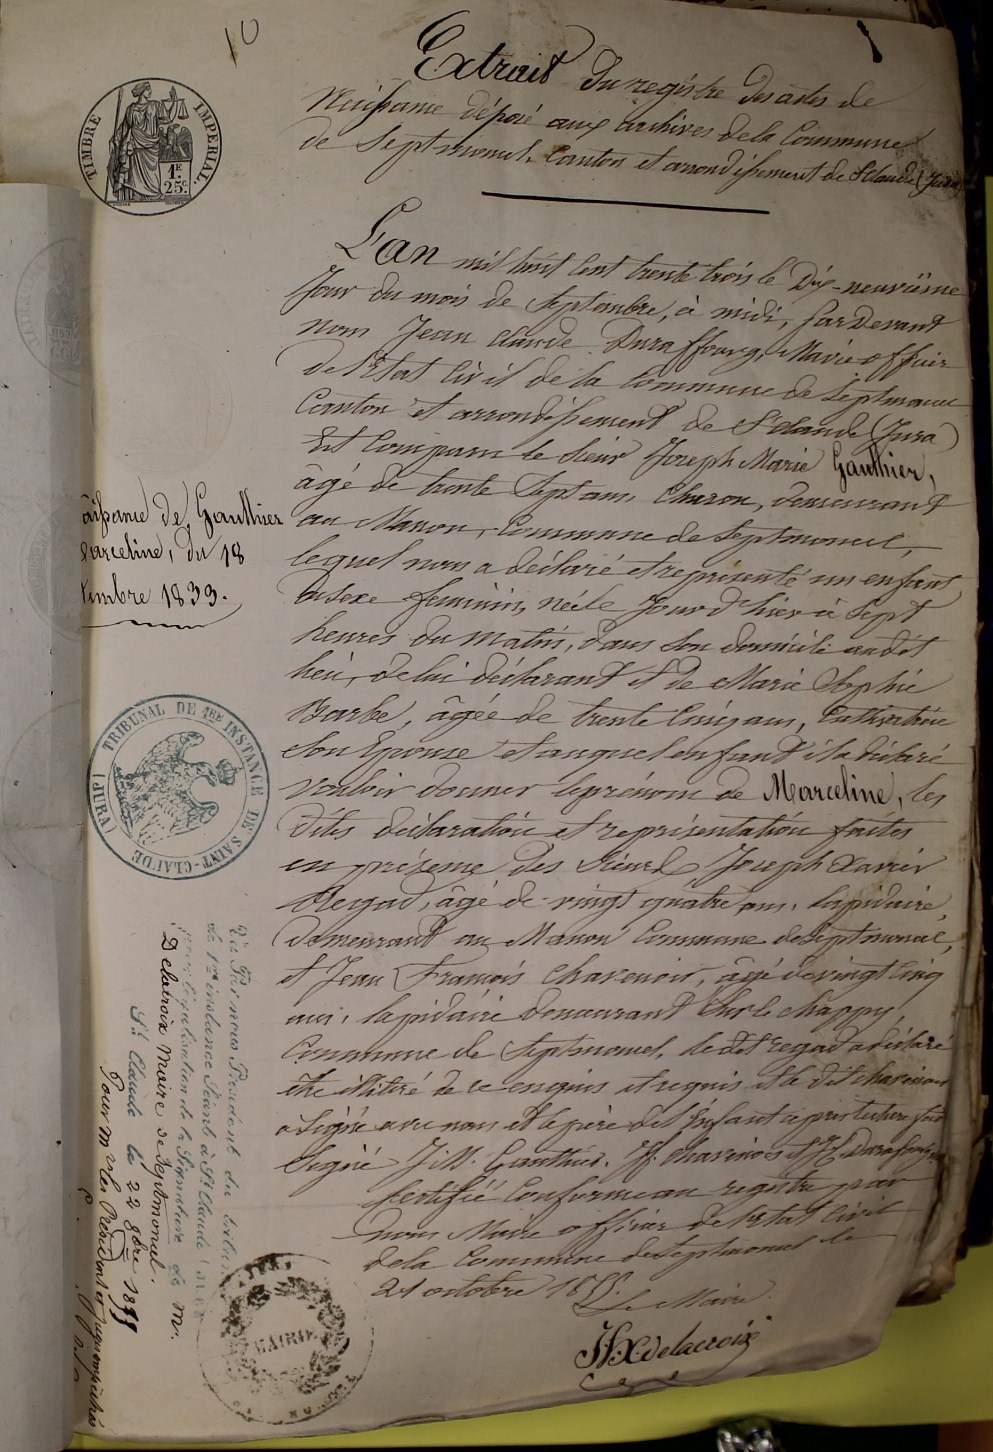 10
Extrait du registre des actes de
Naissance déposé aux archives de la Commune
de Septmoncel, Canton et arrondissement de St Claude (Jura)
TIMBRE IMPERIAL.
1F.
25c.
L'an mil huit cent trente trois le Dix-neuvième
Jour du mois de Septembre, à midi, par Devant
nous Jean Claude Duraffourg, Maire officier
de l'Etat Civil de la Commune de Septmoncel
Canton et arrondissement de St Claude (Jura)
Est Comparu le Sieur Joseph Marie Gauthier,
âgé de trente Sept ans, Charon, demeurant
au Manon, Commune de Septmoncel,
lequel nous a déclaré et représenté un enfant
du sexe féminin, née le Jour d'hier à Sept
heures du matin, dans son domicile au dit
lieu, de lui déclarant et de Marie Sophie
Barbe, âgée de trente Cinq ans, Cultivatrice
Son Epouse et auquel enfant il a déclaré
vouloir donner le prénom de Marceline, les
dites déclaration et représentation faites
en présence des Sieurs Joseph Xavier
Regad, âgé de vingt quatre ans, lapidaire,
demeurant au Manon Commune de Septmoncel,
et Jean François Chavenoir, âgé de vingt Cinq
ans, lapidaire demeurant Sur le Chappy,
Commune de Septmoncel, le dit regad a déclaré
être illitéré de ce enquis et requis et le dit
a Signé avec nous et le père de l'Enfant après lecture fait
Signé J. M. Gauthier. Jf. et
Certifié Conforme au registre par
nous Maire officier de l'Etat Civil
de la Commune de Septmoncel le
21 octobre 1855.
Le Maire.
Delacroix
aissance de Gauthier
arceline, du 18
tembre 1833.
TRIBUNAL DE 1ERE INSTANCE DE SAINT-CLAUDE (JURA)
Vu Par nous Président du tribunal
de 1ere instance Séant à St Claude (
pour légalisation de la Signature de M.
Delacroix Maire de Septmoncel.
St Claude le 22 8bre 1855
Pour M. le Président
MAIRIE